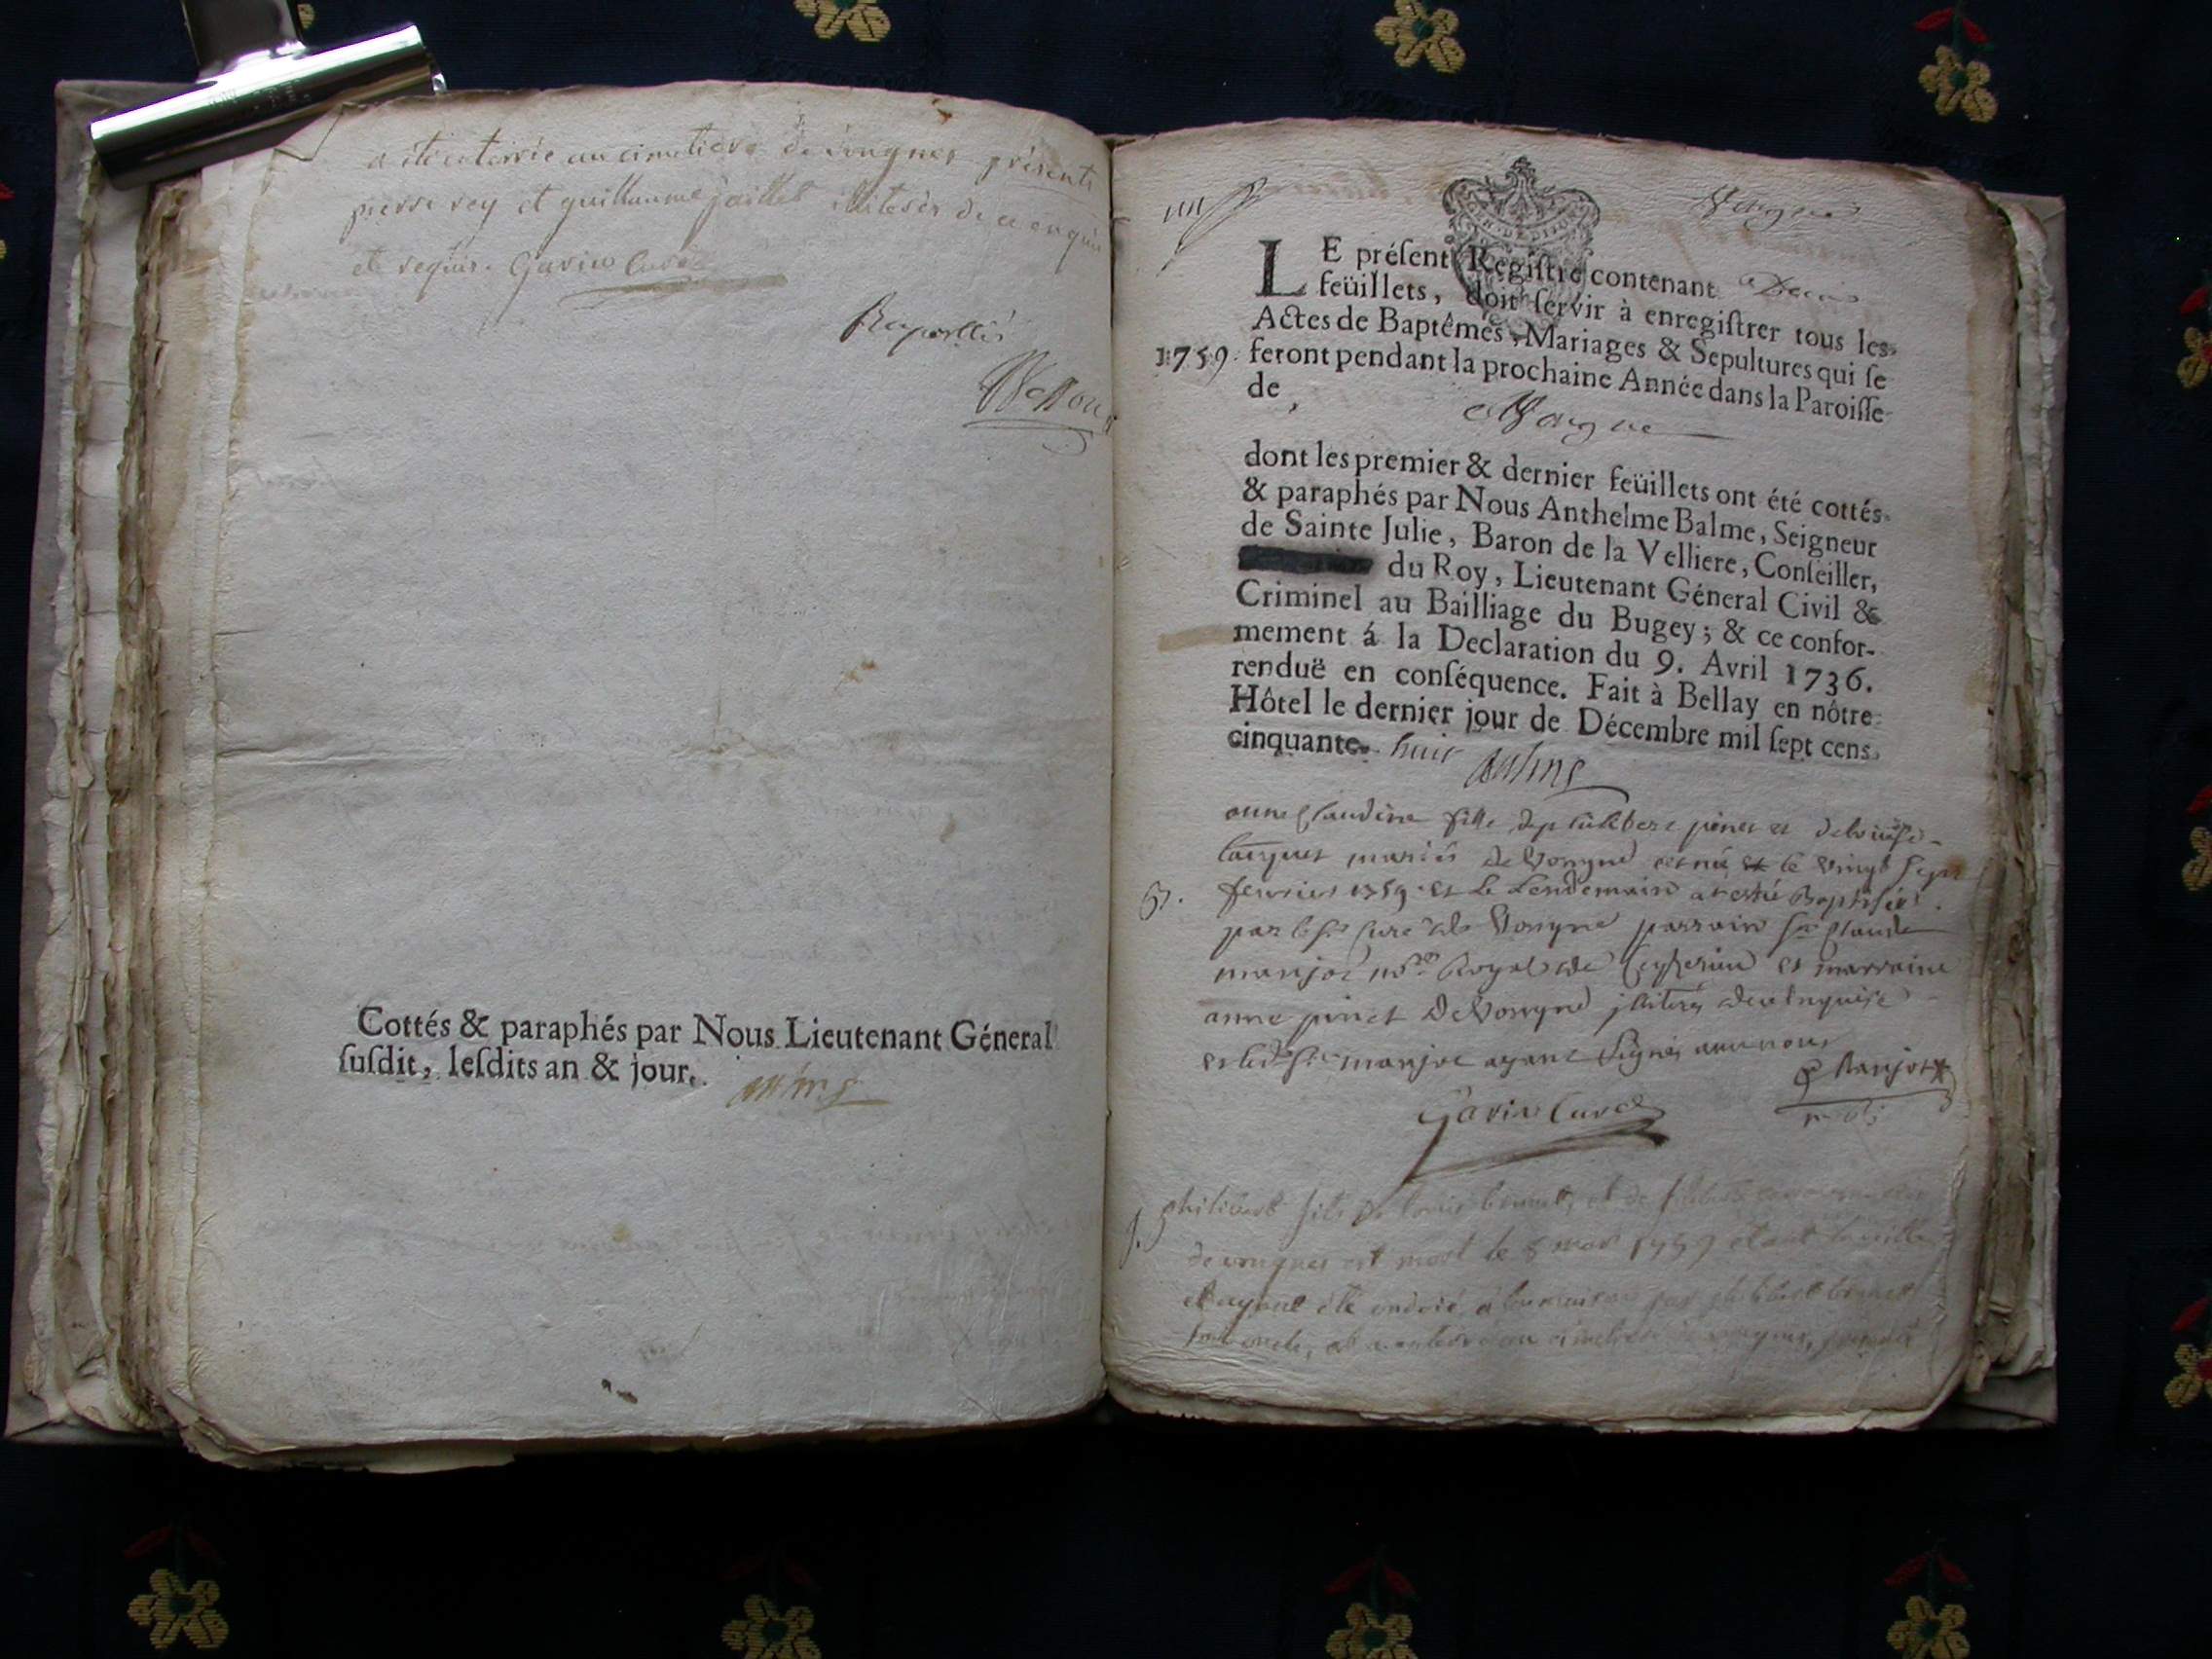 a été enterrée au cimetiere de vongnes présents
pierre rey et guillaume jaillet illiteres de ce enquis
et requis. Gavin Curé
Cottés & paraphés par Nous Lieutenant Géneral
ſuſdit, leſdits an & jour.
Vongne
LE préſent Regiſtre contenant Deux
feüillets, doit ſervir à enregiſtrer tous les
Actes de Baptêmes, Mariages & Sepultures qui ſe
1759. feront pendant la prochaine Année dans la Paroiſſe
de
Vongne
dont les premier & dernier feüillets ont été cottés
& paraphés par Nous Anthelme Balme, Seigneur
de Sainte Julie, Baron de la Velliere, Conſeiller,
du Roy, Lieutenant Géneral Civil &
Criminel au Bailliage du Bugey; & ce confor-
mement á la Declaration du 9. Avril 1736.
renduë en conſéquence. Fait à Bellay en nôtre
Hôtel le dernier jour de Décembre mil ſept cens
cinquante huit Balme
anne Claudine fille de philibert pinet et de
mariés de Vongne est née le vingt sept
B. fevrier 1759. et le Lendemain a esté Baptisée
par le sr curé de Vongne parrain sr Claude
marjot Royal de Ceyzerieu et marraine
anne pinet de Vongne illiterée de ce enquise
et led. sr marjot ayant signés avec nous
Marjot
Gavin Curé
philibert fils de louis bonnet, et de
de vongnes est mort le 8 mars 1759 étant né la veille
et ayant été ondoié à la maison par philibert bonnet
son oncle, et a enterré au cimetiere de vongnes, présents